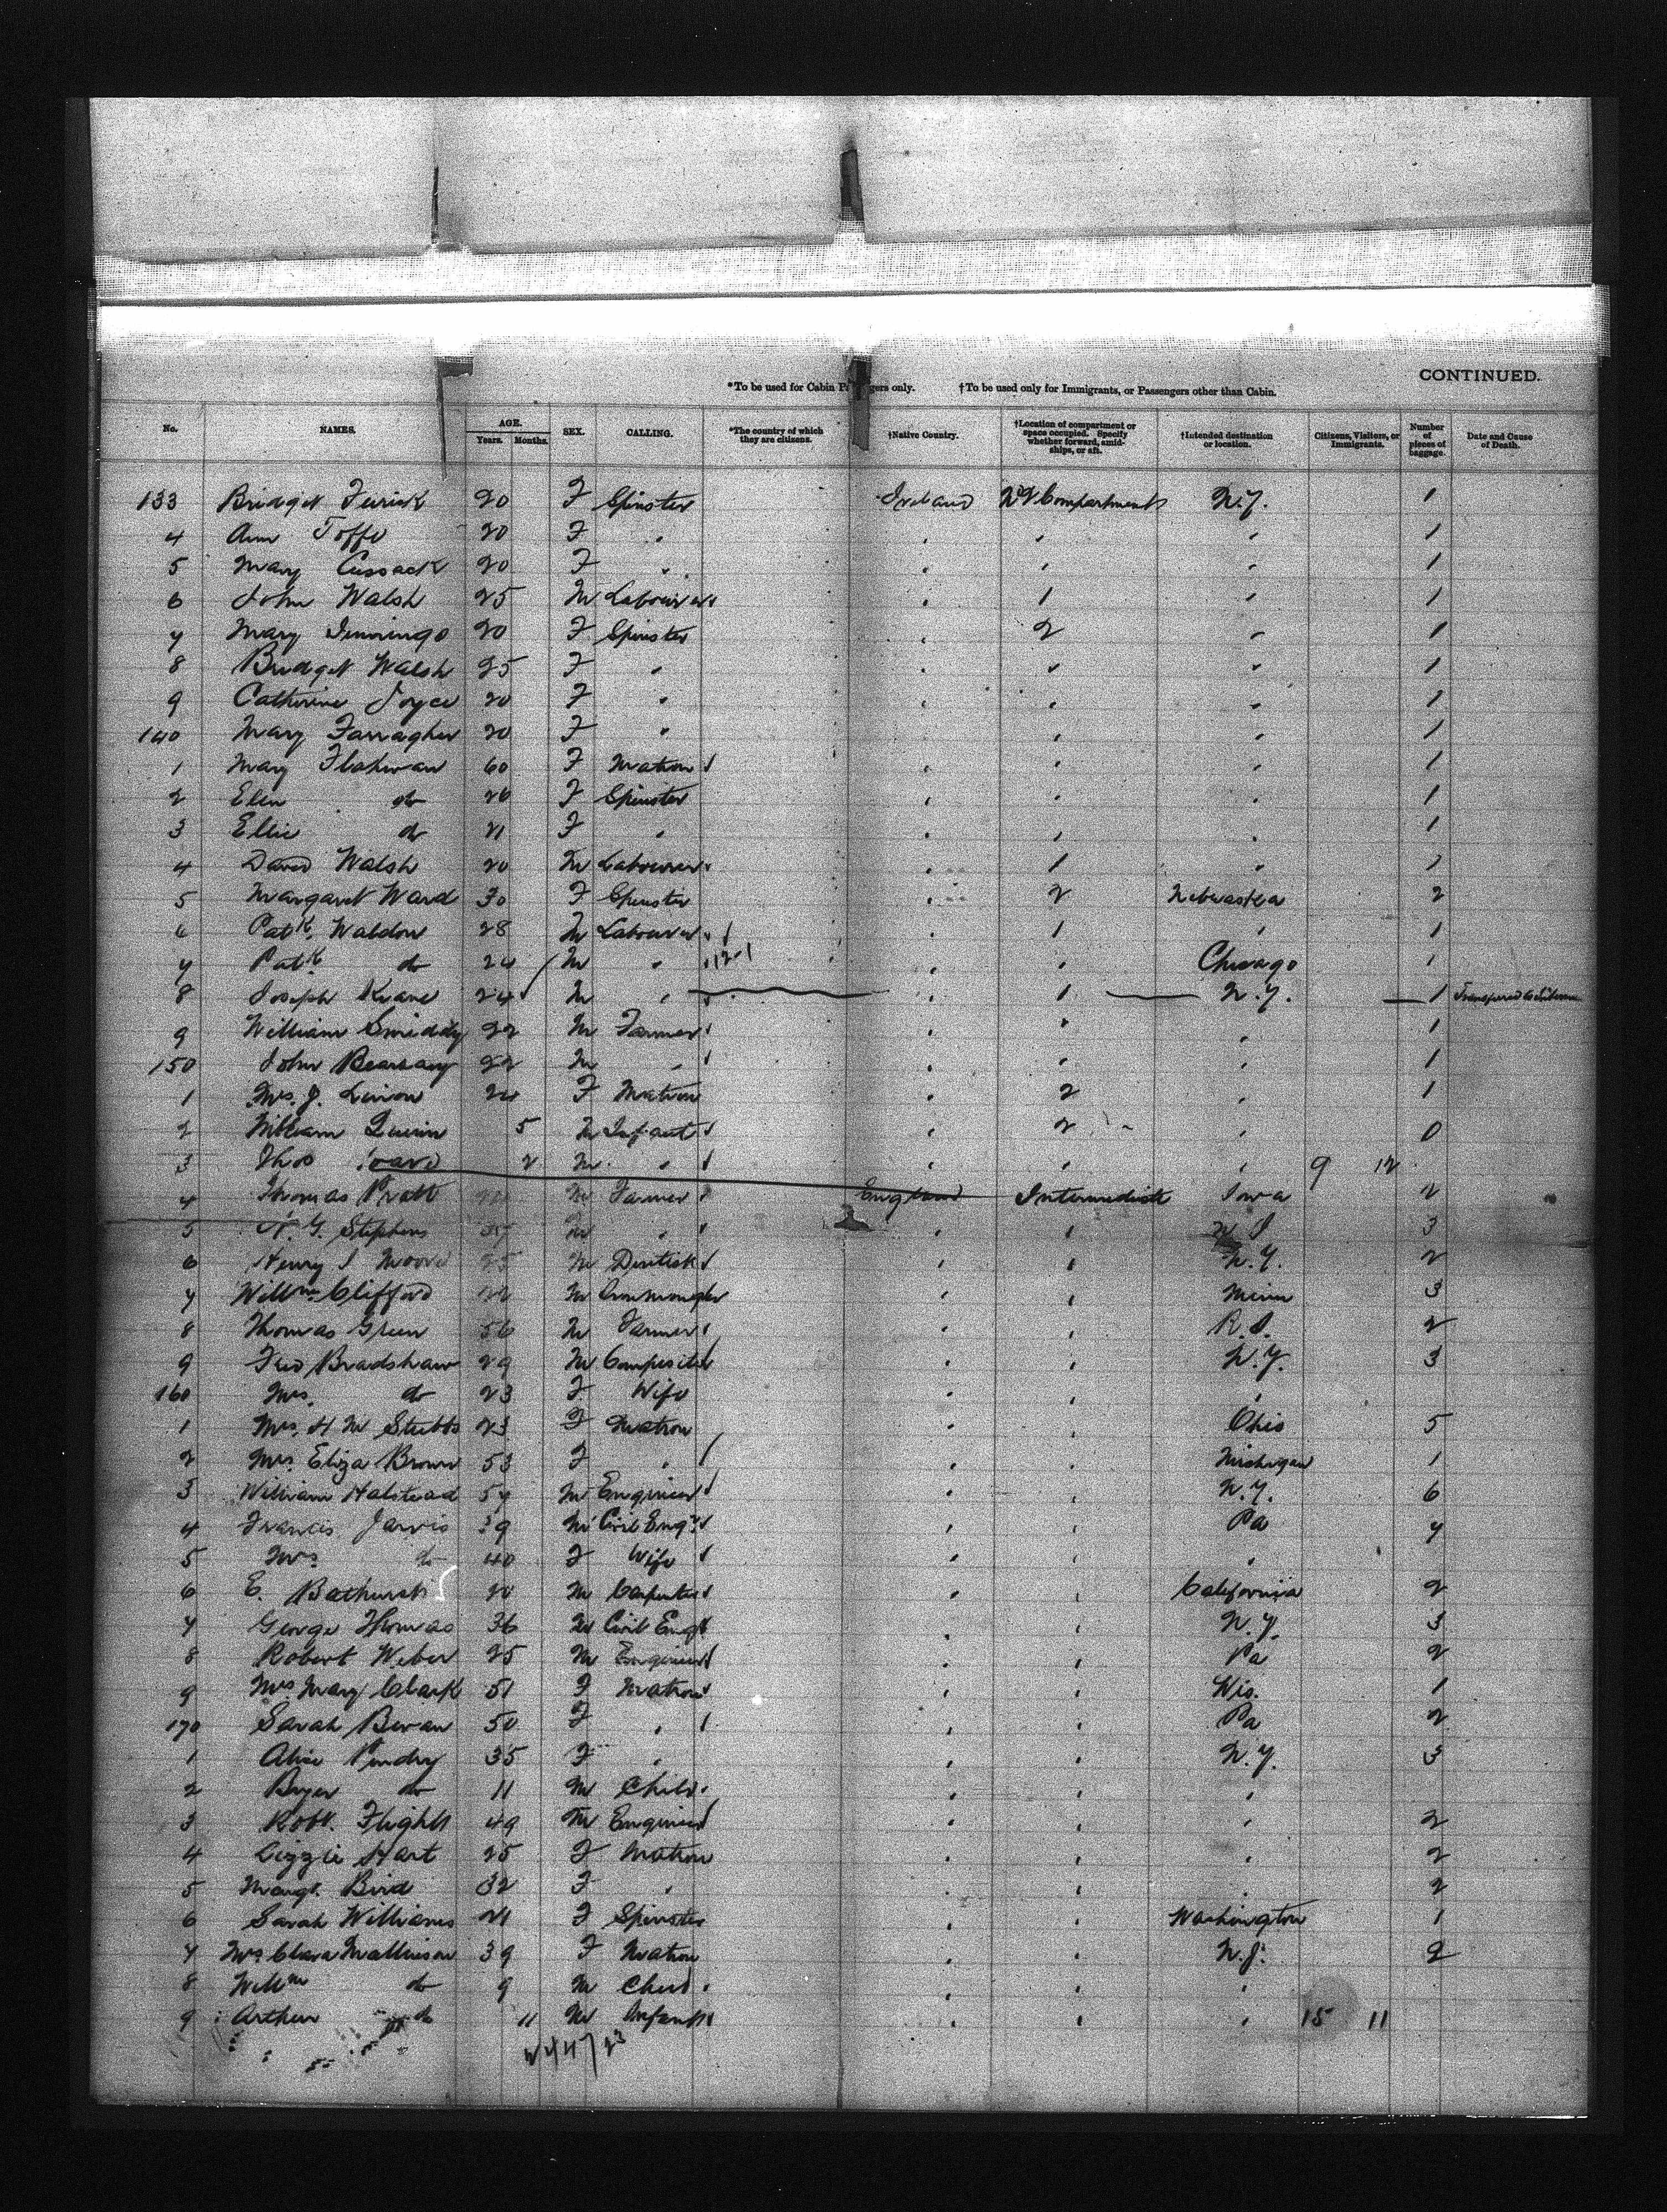 CONTINUED.
*To be used for Cabin Passengers only. †To be used only for Immigrants, or Passengers other than Cabin.
No. NAMES. AGE. Years. Months. SEX. CALLING. *The country of which they are citizens. †Native Country. †Location of compartment or space occupied. Specify whether forward, amidships, or aft. †Intended destination or location. Citizens, Visitors, or Immigrants. Number of pieces of baggage. Date and Cause of Death.
133 Bridget 20 F Spinster Ireland No 2 Compartment N.Y. 1
4 Ann 20 F " " " " 1
5 Mary Cussack 20 F " " " " 1
6 John Walsh 25 M Labourer " 1 " 1
7 Mary Jennings 20 F Spinster " 2 " 1
8 Bridget Walsh 25 F " " " " 1
9 Catherine Joyce 20 F " " " " 1
140 Mary Farragher 20 F " " " " 1
1 Mary 60 F Matron " " " 1
2 Ellen do 26 F Spinster " " " 1
3 Ellie do 21 F " " " " 1
4 David Walsh 20 M Labourer " 1 " 1
5 Margaret Ward 30 F Spinster " 2 Nebraska 2
6 Patk. Waldon 28 M Labourer " 1 " 1
7 Patk. do 24 M " " " Chicago 1
8 Joseph Keane 24 M " " 1 N.Y. 1
9 William Smiddy 22 M Farmer " " " 1
150 John 22 M " " " " 1
1 Mrs. J. 24 F Matron " 2 " 1
2 William 5 M Infant " 2 " 0
3 Thos 2 M " " " " 9 12
4 Thomas Pratt M Farmer England Intermediate Iowa 2
5 Stephens M " " " 3
6 Henry J Moore 25 M Dentist " " N.Y. 2
7 Willm Clifford 22 M Ironmonger " " Minn 3
8 Thomas Green 56 M Farmer " " R.I. 2
9 Fred Bradshaw 29 M Compositor " " N.Y. 3
160 Mrs. do 23 F Wife " " "
1 Mrs. H M Stubbs 23 F Matron " " Ohio 5
2 Mrs. Eliza Brown 53 F " " " Michigan 1
3 William Halstead 57 M Engineer " " N.Y. 6
4 Francis Jarvis 39 M Civil Engr " " Pa 7
5 Mrs. do 40 F Wife " " "
6 E. Bathurst 20 M Carpenter " " California 2
7 George Thomas 36 M Civil Engr " " N.Y. 3
8 Robert Weber 25 M Engineer " " Pa 2
9 Mrs Mary Clark 51 F Matron " " Wis. 1
170 Sarah Bevan 50 F " " " Pa 2
1 Alice Pendry 35 F " " " N.Y. 3
2 do 11 M Child " " "
3 Robt. Flight 49 M Engineer " " " 2
4 Lizzie Hart 25 F Matron " " " 2
5 Margt. Bird 32 F " " " " 2
6 Sarah Williams 21 F Spinster " " Washington 1
7 Mrs. Clara Mallinson 39 F Matron " " N.J. 2
8 Willm do 9 M Child " " "
9 Arthur do 11 M Infant " " " 15 11